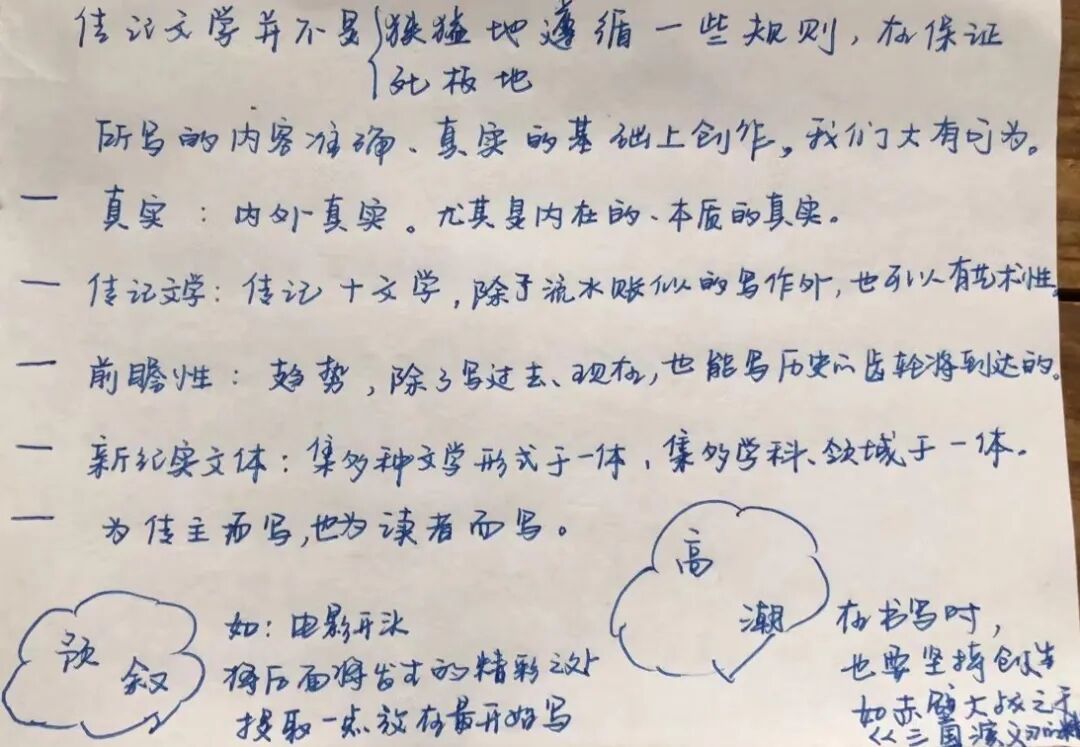 传记文学并不是狭猛地遵循一些规则,在保证
死板地
所写的内容准确、真实的基础上创作。我们大有可为。
一 真实:内外真实。尤其是内在的、本质的真实。
一 传记文学:传记+文学,除了流水账似的写作外,也可以有艺术性。
一 前瞻性:趋势,除了写过去、现在,也能写历史的齿轮将到达的。
一 新纪实文体:集多种文学形式于一体,集多学科、领域于一体。
一 为传主而写,也为读者而写。
预叙
如:电影开头
将后面将发生的精彩之处
提取一点放在最开始写
高潮
在书写时,
也要坚持创造
如赤壁大战之于
《三国演义》的